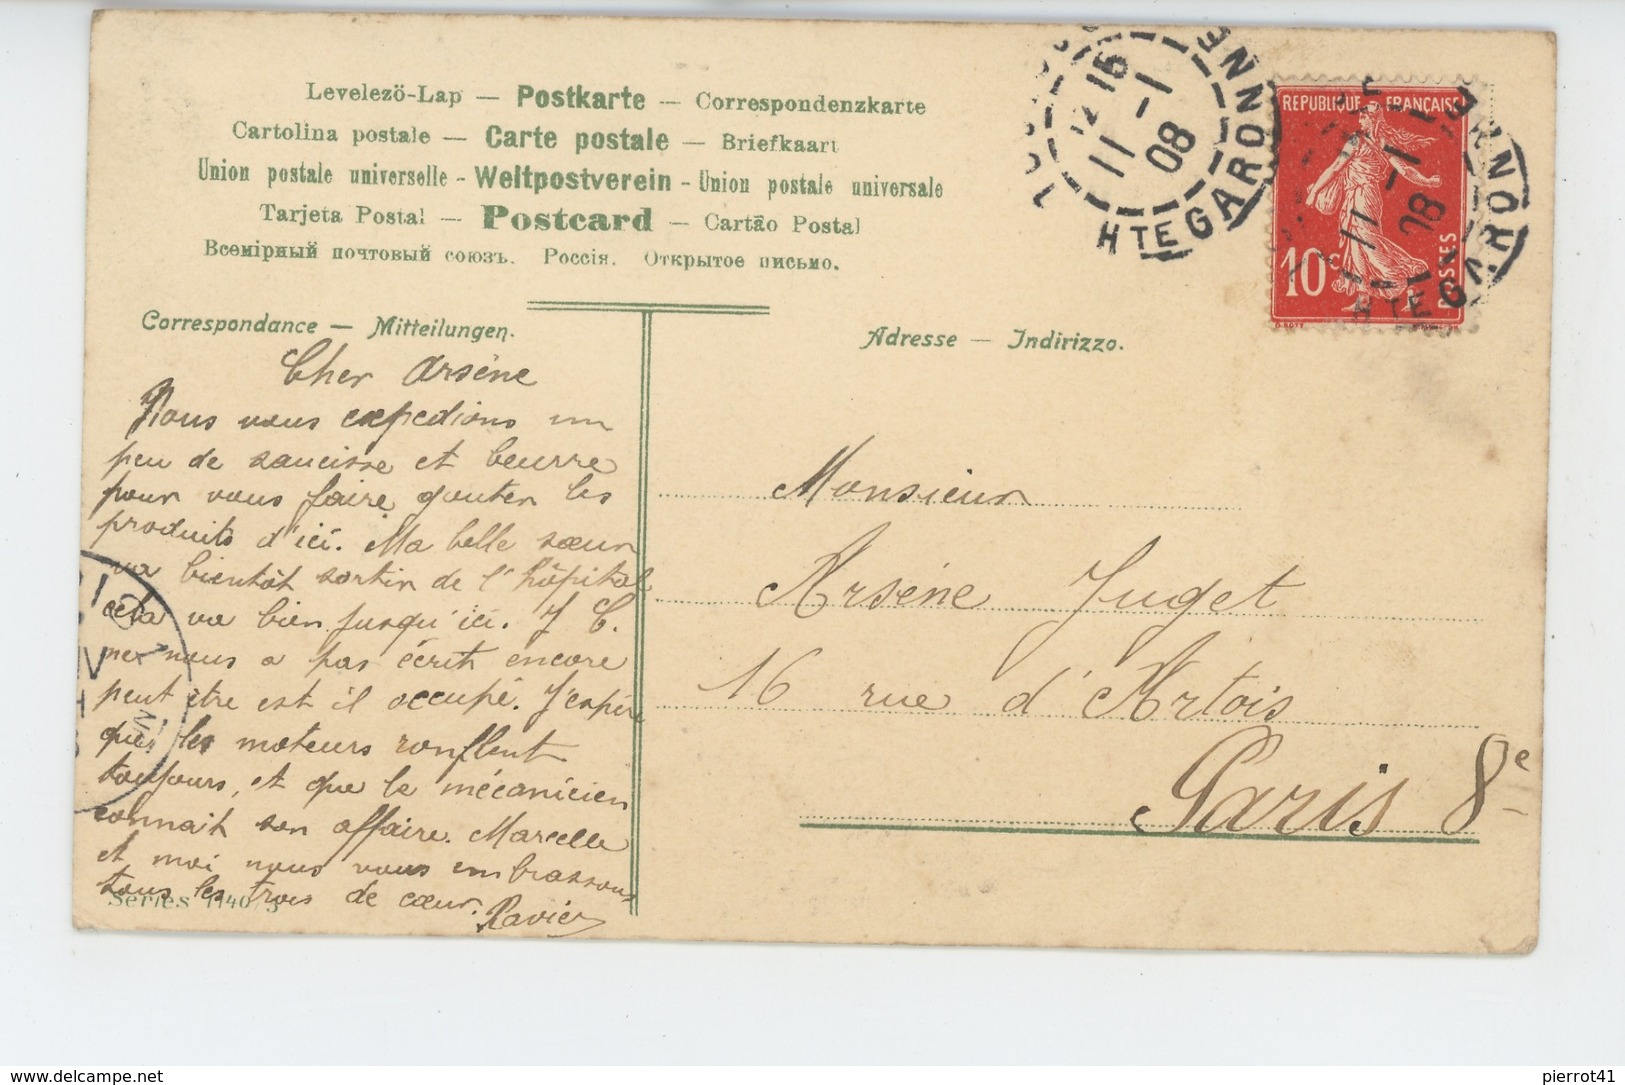 Levelezö-Lap — Postkarte — Correspondenzkarte
Cartolina postale — Carte postale — Briefkaart
Union postale universelle - Weltpostverein - Union postale universale
Tarjeta Postal — Postcard — Cartão Postal
Всемірный почтовый союзъ. Россія. Открытое письмо.
12 15
11 -1
08
HTE GARONNE
REPUBLIQUE FRANÇAISE
10c
POSTES
11 -1
08
HTE GARONNE
Correspondance — Mitteilungen.
Adresse — Indirizzo.
Cher Arsène
Nous vous expedions un
peu de saucisse et beurre
pour vous faire gouter les
produits d'ici. Ma belle sœur
va bientôt sortir de l'hôpital
cela va bien jusqu'ici. J C.
ne nous a pas écrit encore
peut être est il occupé. J'espère
que les moteurs ronflent
toujours, et que le mécanicien
connait son affaire. Marcelle
et moi nous vous embrassons
tous les trois de cœur.
Xavier
Series 1140/3
Monsieur
Arsène Juget
16 rue d'Artois
Paris 8e
delcampe.net
pierrot41